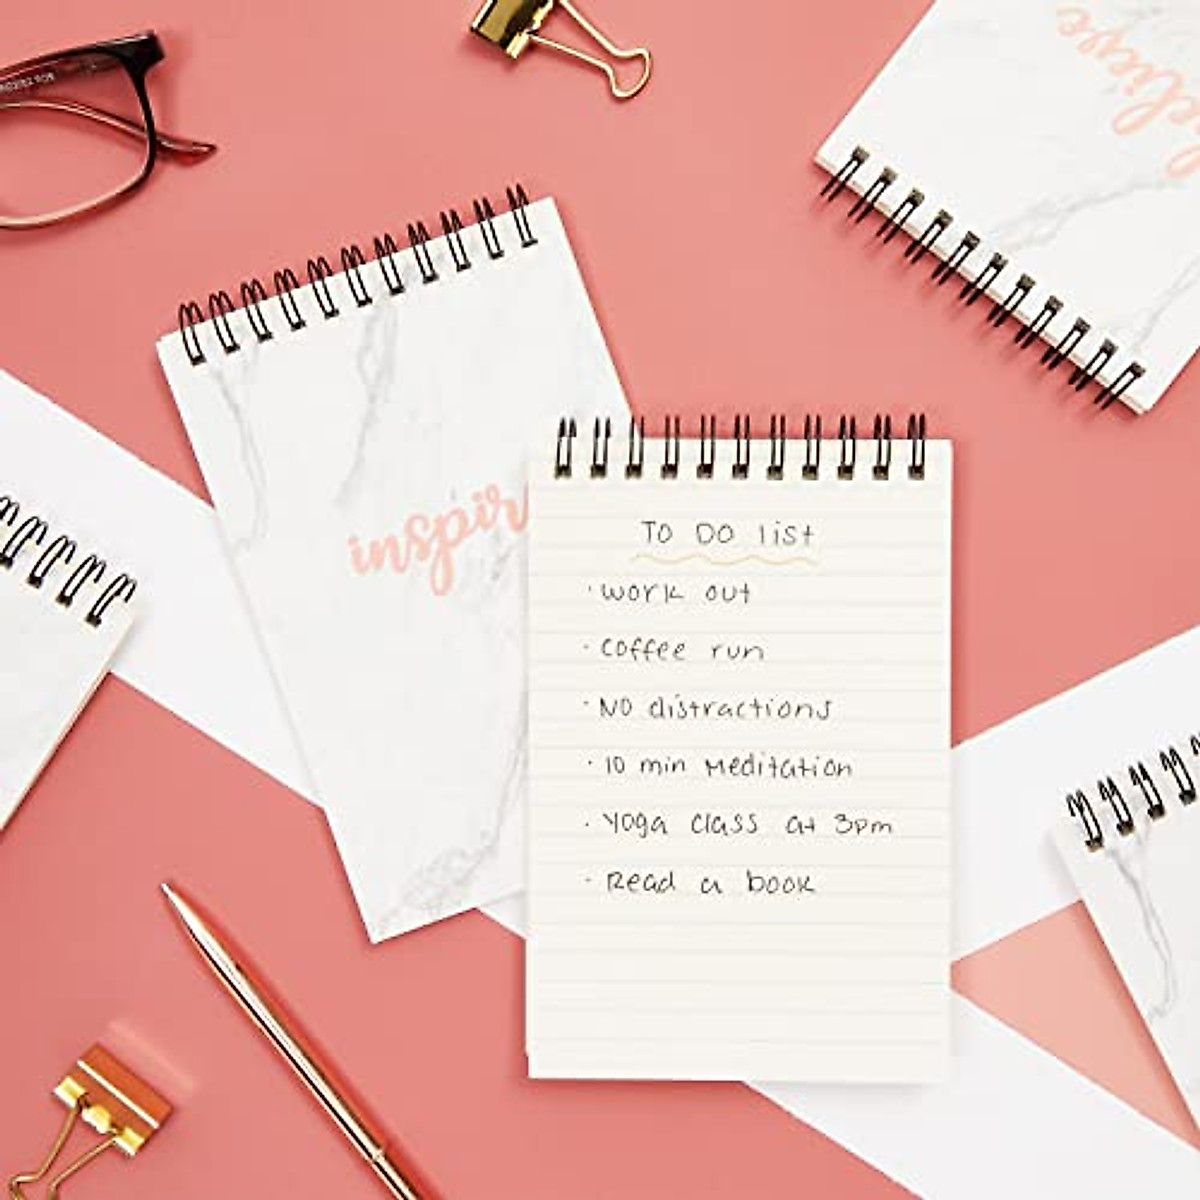 TO DO list
· work out
· coffee run
· NO distractions
· 10 min Meditation
· Yoga class at 3pm
· Read a book
inspir
elieve